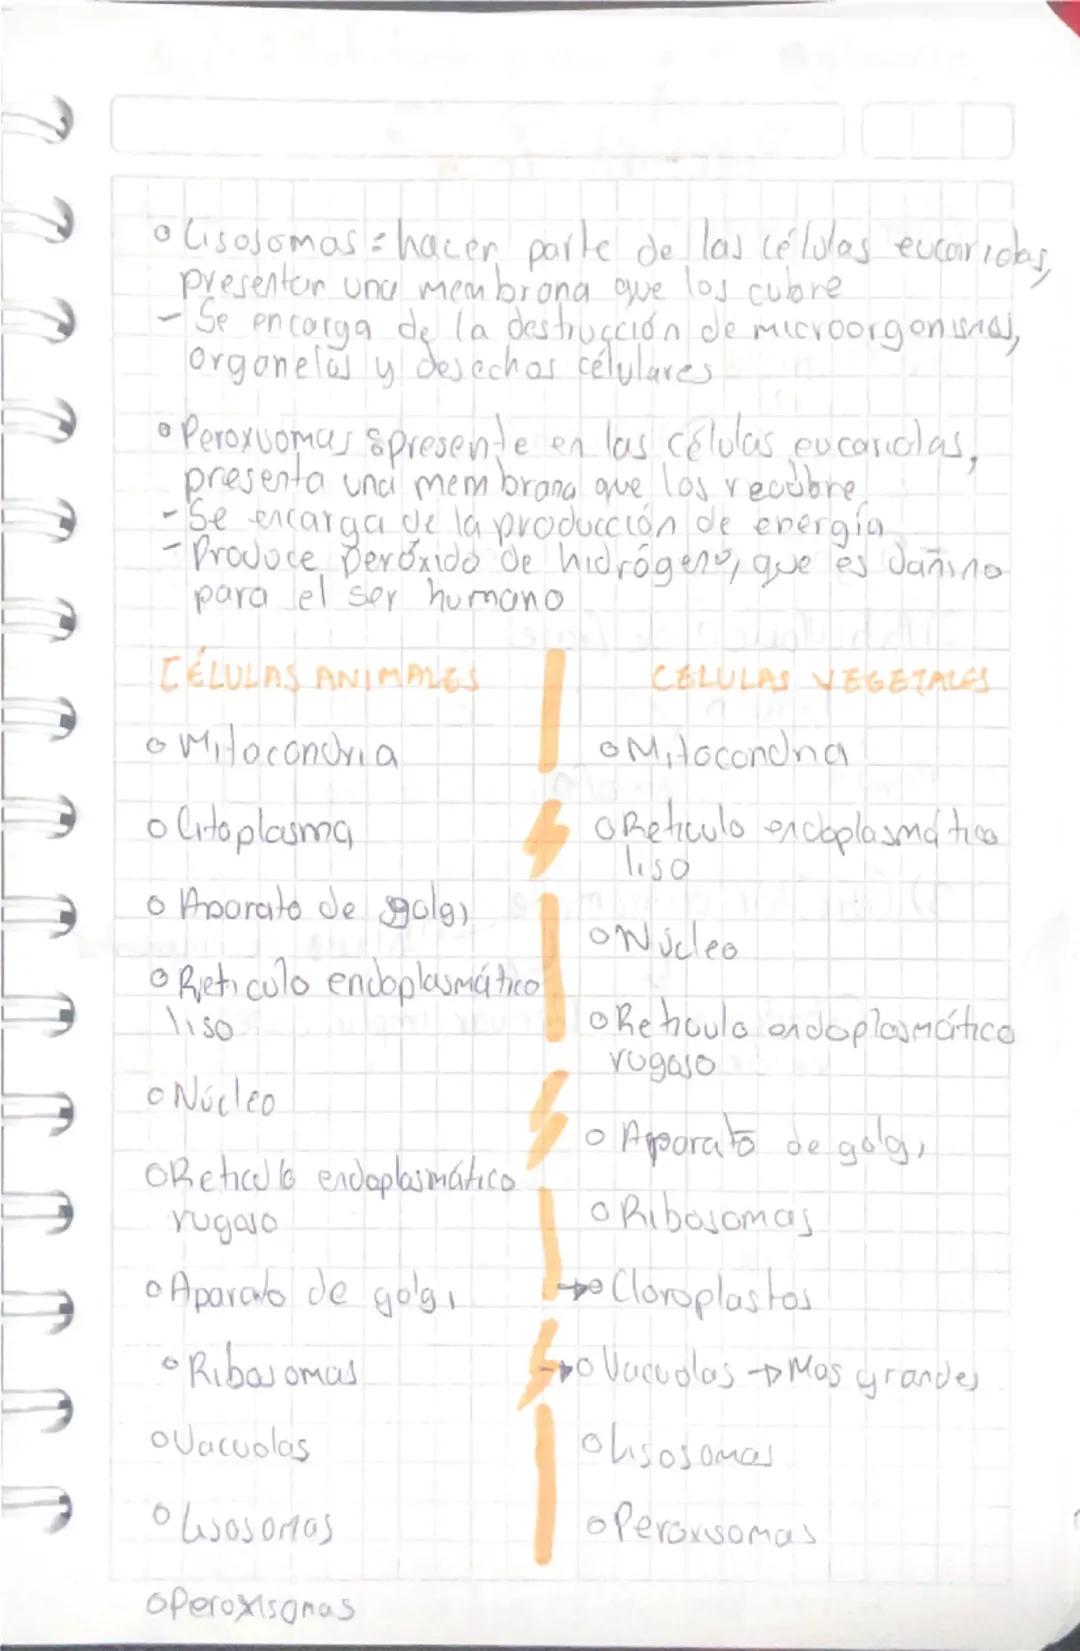 o Lisosomas = hacen parte de las células eucariotas,
presentan una membrana que los cubre
- Se encarga de la destrucción de microorganismos,
organelos y desechos célulares
o Peroxisomas: presente en las células eucariotas,
presenta una membrana que los recubre
- Se encarga de la producción de energía
- Produce peróxido de hidrógeno, que es dañino
para el ser humano
CÉLULAS ANIMALES
o Mitocondria
o Citoplasma
o Aparato de golgi
o Reticulo endoplasmático
liso
o Núcleo
o Reticulo endoplasmático
rugoso
o Aparato de golgi
o Ribosomas
o Vacuolas
o Lisosomas
o Peroxisomas
CELULAS VEGETALES
o Mitocondria
o Reticulo endoplasmático
liso
o Núcleo
o Reticulo endoplasmático
rugoso
o Aparato de golgi
o Ribosomas
→o Cloroplastos
→o Vacuolas → Mas grandes
o Lisosomas
o Peroxisomas